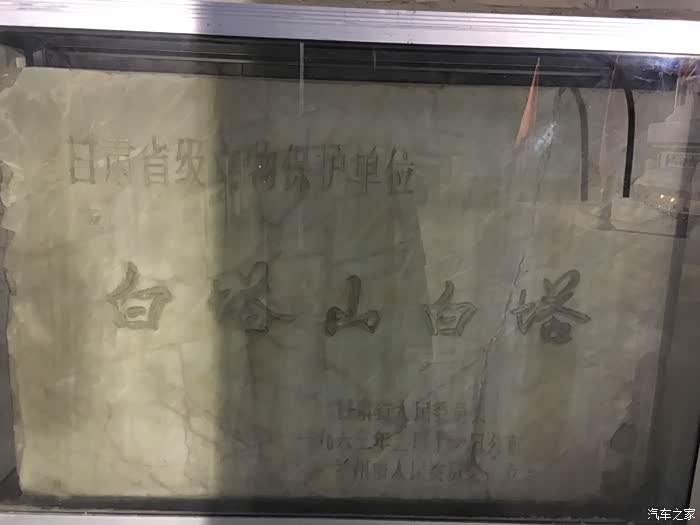 甘肃省级文物保护单位
白塔山白塔
甘肃省人民委员会
一九六三年二月十一日公布
兰州市人民委员会 立
汽车之家